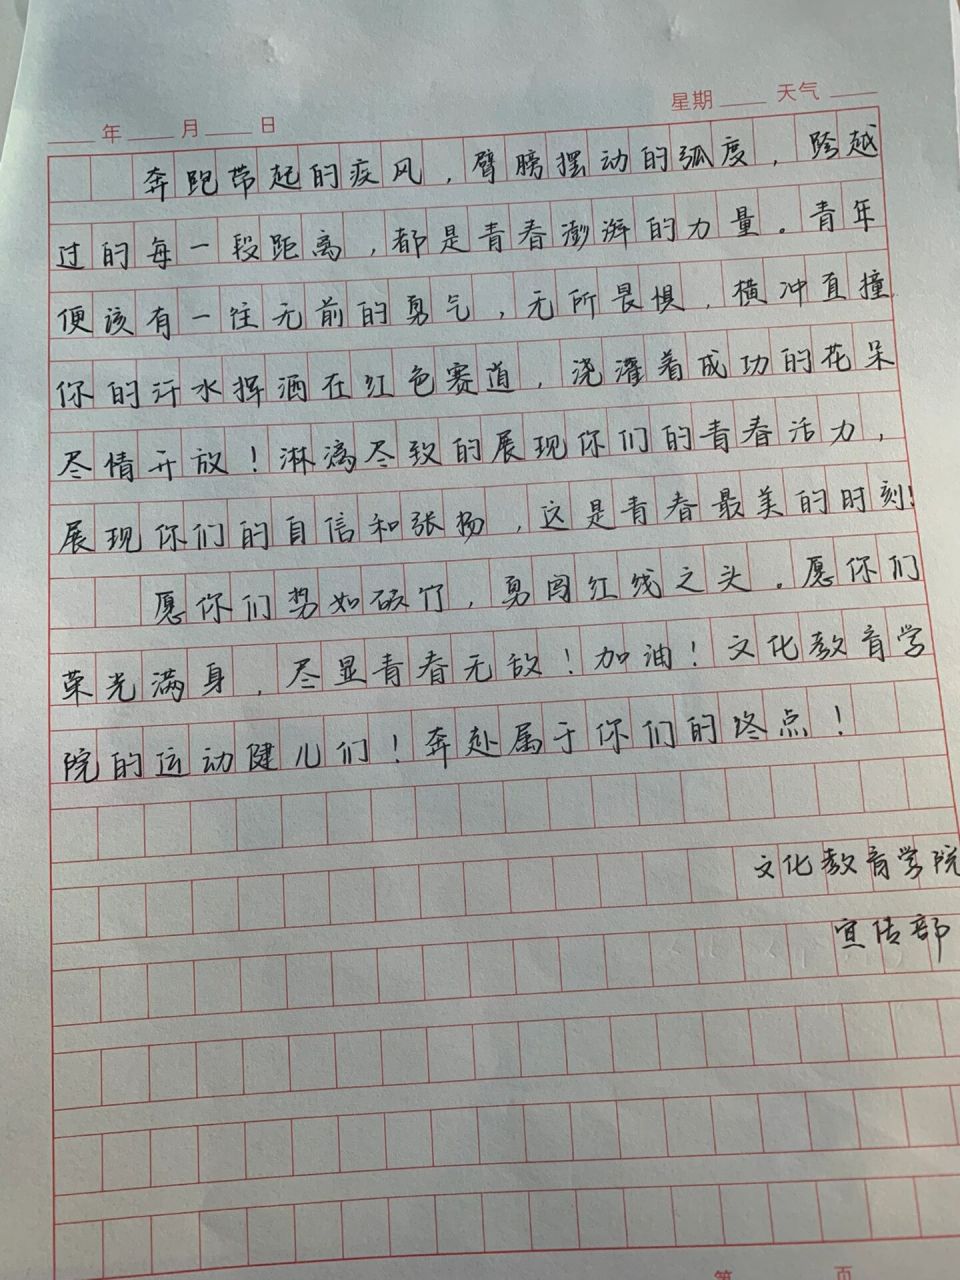 星期 天气
年 月 日
奔跑带起的疾风，臂膀摆动的弧度，跨越
过的每一段距离，都是青春澎湃的力量。青年
便该有一往无前的勇气，无所畏惧，横冲直撞
你的汗水挥洒在红色赛道，浇灌着成功的花朵
尽情开放！淋漓尽致的展现你们的青春活力，
展现你们的自信和张扬，这是青春最美的时刻！
愿你们势如破竹，勇闯红线之头。愿你们
荣光满身，尽显青春无敌！加油！文化教育学
院的运动健儿们！奔赴属于你们的终点！
文化教育学院
宣传部
第 页